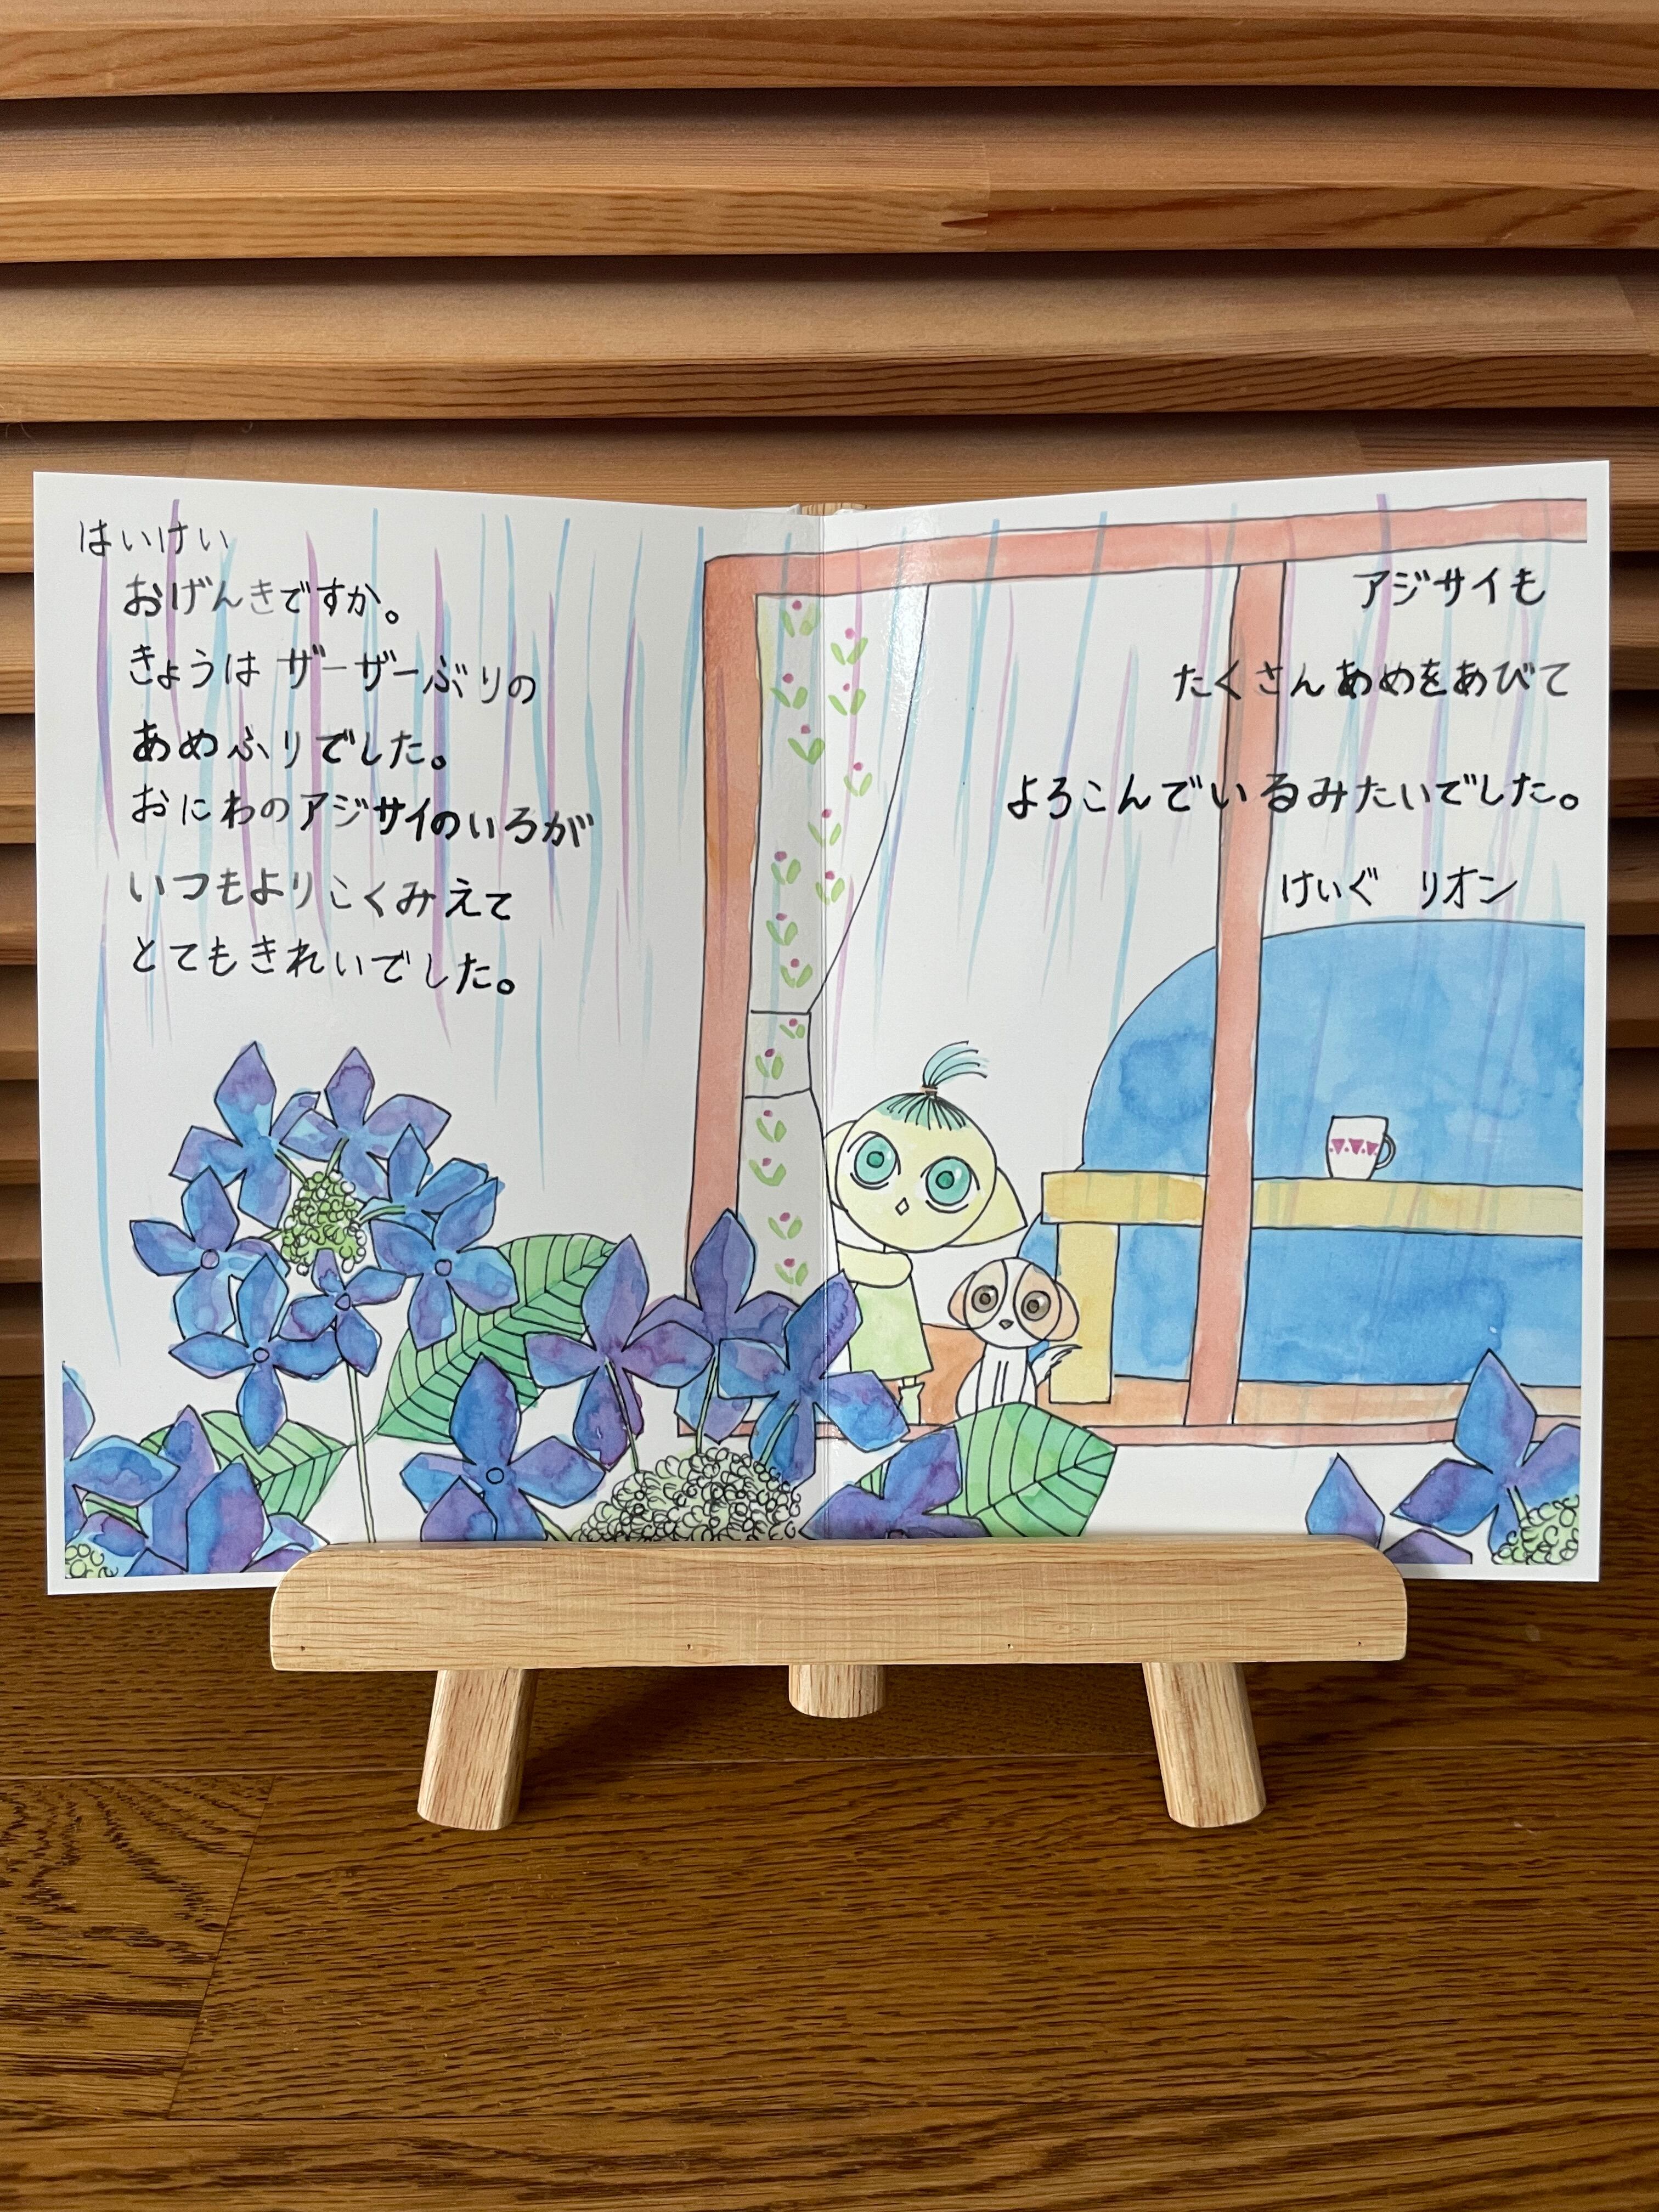 はいけい
おげんきですか。
きょうは ザーザーぶりの
あめふりでした。
おにわのアジサイのいろが
いつもよりこくみえて
とてもきれいでした。
アジサイも
たくさんあめをあびて
よろこんでいるみたいでした。
けいぐ リオン